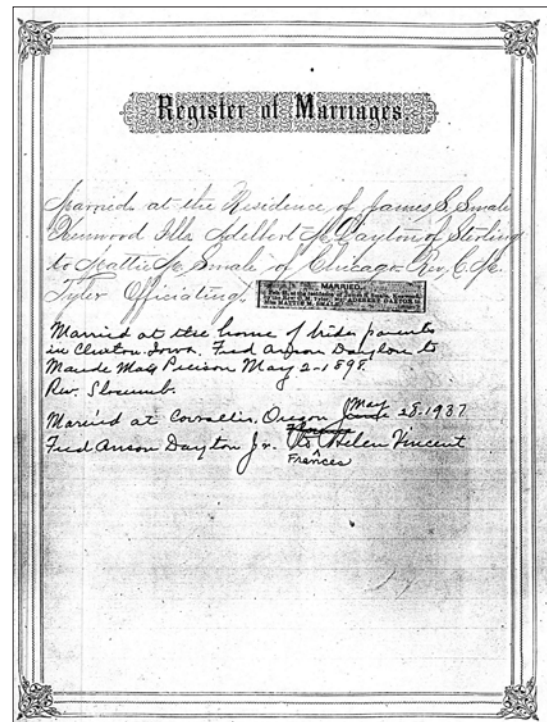 Register of Marriages.
Married at the Residence of James S. Smale
Kenwood Ills. Adelbert M. Dayton of Sterling
to Mattie M. Smale of Chicago. Rev. C. M.
Tyler Officiating.
MARRIED.
Married at the home of brides parents
in Clinton Iowa. Fred Anson Dayton to
Maude May Pierson May 2-1898.
Rev. Slocumb.
Married at Corvallis, Oregon May 28-1937
Fred Anson Dayton Jr. to Helen Vincent
Frances